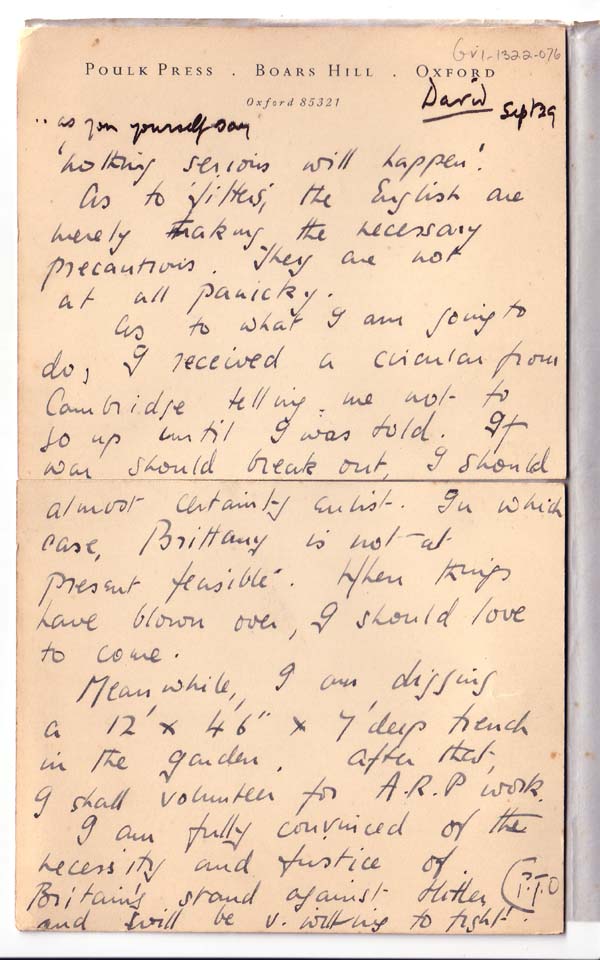 Gv1-1322-076
POULK PRESS . BOARS HILL . OXFORD
Oxford 85321
David Sept 29
.. as you yourself say
'nothing serious will happen'.
As to 'jitters', the English are
merely making the necessary
precautions. They are not
at all panicky.
As to what I am going to
do, I received a circular from
Cambridge telling me not to
go up until I was told. If
war should break out, I should
almost certainly enlist. In which
case, Brittany is not at
present feasible. When things
have blown over, I should love
to come.
Meanwhile, I am digging
a 12' x 4'6" x 7' deep trench
in the garden. After that,
I shall volunteer for A.R.P work.
I am fully convinced of the
necessity and justice of
Britain's stand against Hitler
and will be v. willing to fight.
P.T.O